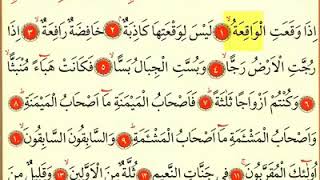 إِذَا وَقَعَتِ الْوَاقِعَةُ ١ لَيْسَ لِوَقْعَتِهَا كَاذِبَةٌ ٢ خَافِضَةٌ رَافِعَةٌ ٣ إِذَا
رُجَّتِ الْاَرْضُ رَجًّا ٤ وَبُسَّتِ الْجِبَالُ بَسًّا ٥ فَكَانَتْ هَبَآءً مُنْبَثًّا
٦ وَكُنْتُمْ اَزْوَاجًا ثَلٰثَةً ٧ فَاَصْحَابُ الْمَيْمَنَةِ مَآ اَصْحَابُ الْمَيْمَنَةِ ٨
وَاَصْحَابُ الْمَشْـَٔمَةِ مَآ اَصْحَابُ الْمَشْـَٔمَةِ ٩ وَالسَّابِقُونَ السَّابِقُونَ ١٠
اُولٰٓئِكَ الْمُقَرَّبُونَ ١١ فِي جَنَّاتِ النَّعِيمِ ١٢ ثُلَّةٌ مِنَ الْاَوَّلِينَ ١٣ وَقَلِيلٌ مِنَ